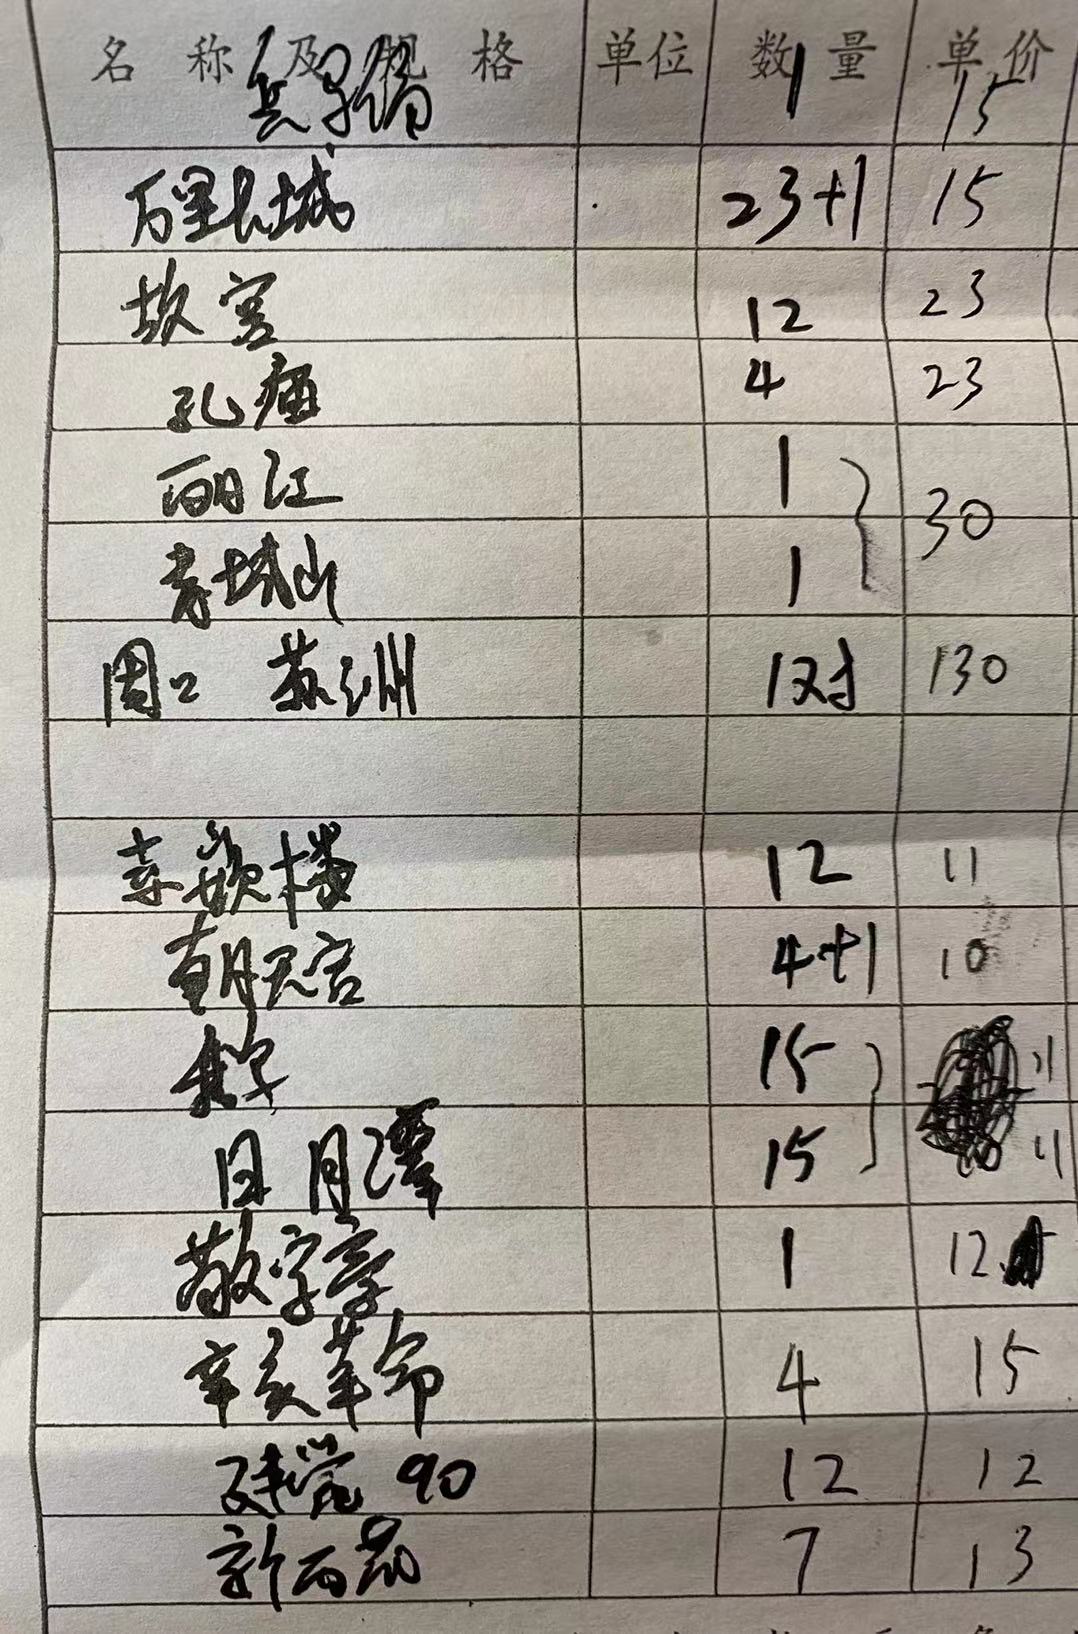 名称及规格 单位 数量 单价
兵马俑 1 15
万里长城 23+1 15
故宫 12 23
孔庙 4 23
丽江 1
30
青城山 1
周口 苏州 1对 130
12 11
朝天宫 4+1 10
15 11
日月潭 15 11
敬字亭 1 12
辛亥革命 4 15
建党90 12 12
7 13